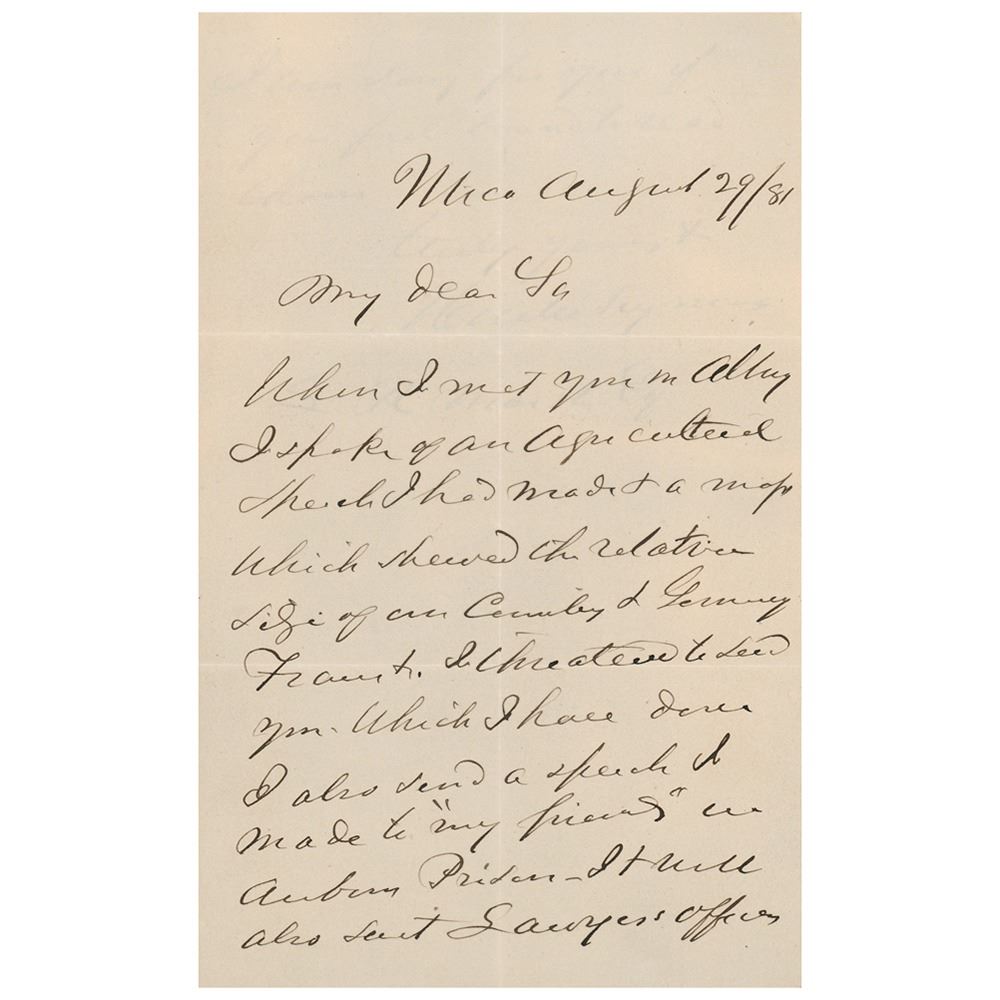 Utica August 29/81
My dear Sir
When I met you in Albany
I spoke of an Agricultural
speech I had made & a map
which shewed the relative
size of our Country & Germany
France &c. I threatened to send
you. Which I have done
I also send a speech I
made to "my friends" in
Auburn Prison_It will
also suit Lawyers offices